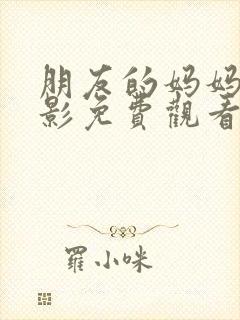 朋友的妈妈
影免費觀看
羅小咪